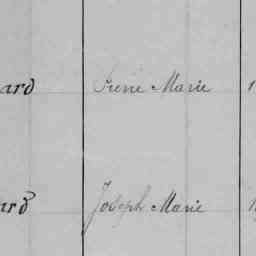 ard Irené Marie 1
ard Joseph Marie 1